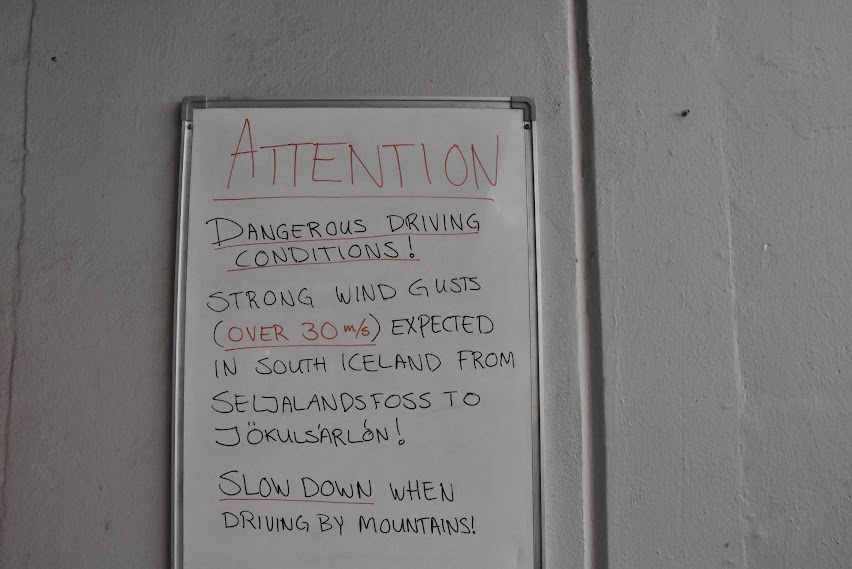 ATTENTION
DANGEROUS DRIVING
CONDITIONS!
STRONG WIND GUSTS
(OVER 30 m/s) EXPECTED
IN SOUTH ICELAND FROM
SELJALANDSFOSS TO
JÖKULSÁRLÓN!
SLOW DOWN WHEN
DRIVING BY MOUNTAINS!